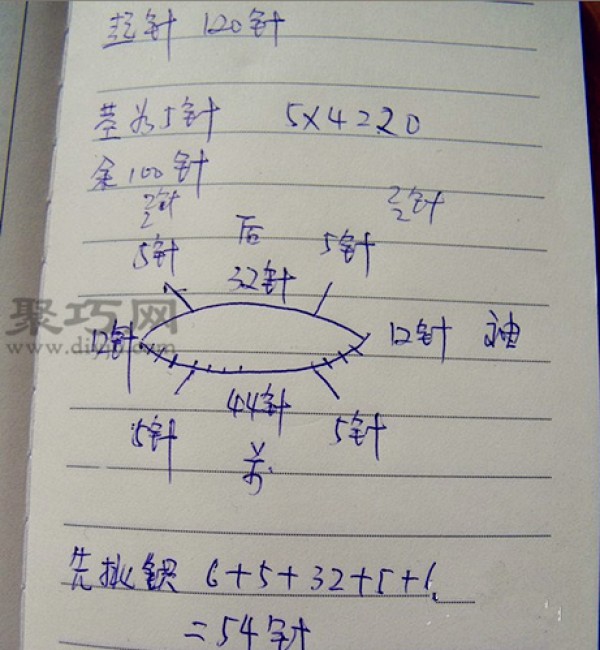 起针 120针
茎为5针 5×4=20
余100针
2/2针 2/2针
5针 后 5针
32针
聚巧网
www.diyjq.com
12针 12针 袖
44针
5针 5针
前
先挑织 6+5+32+5+6
=54针